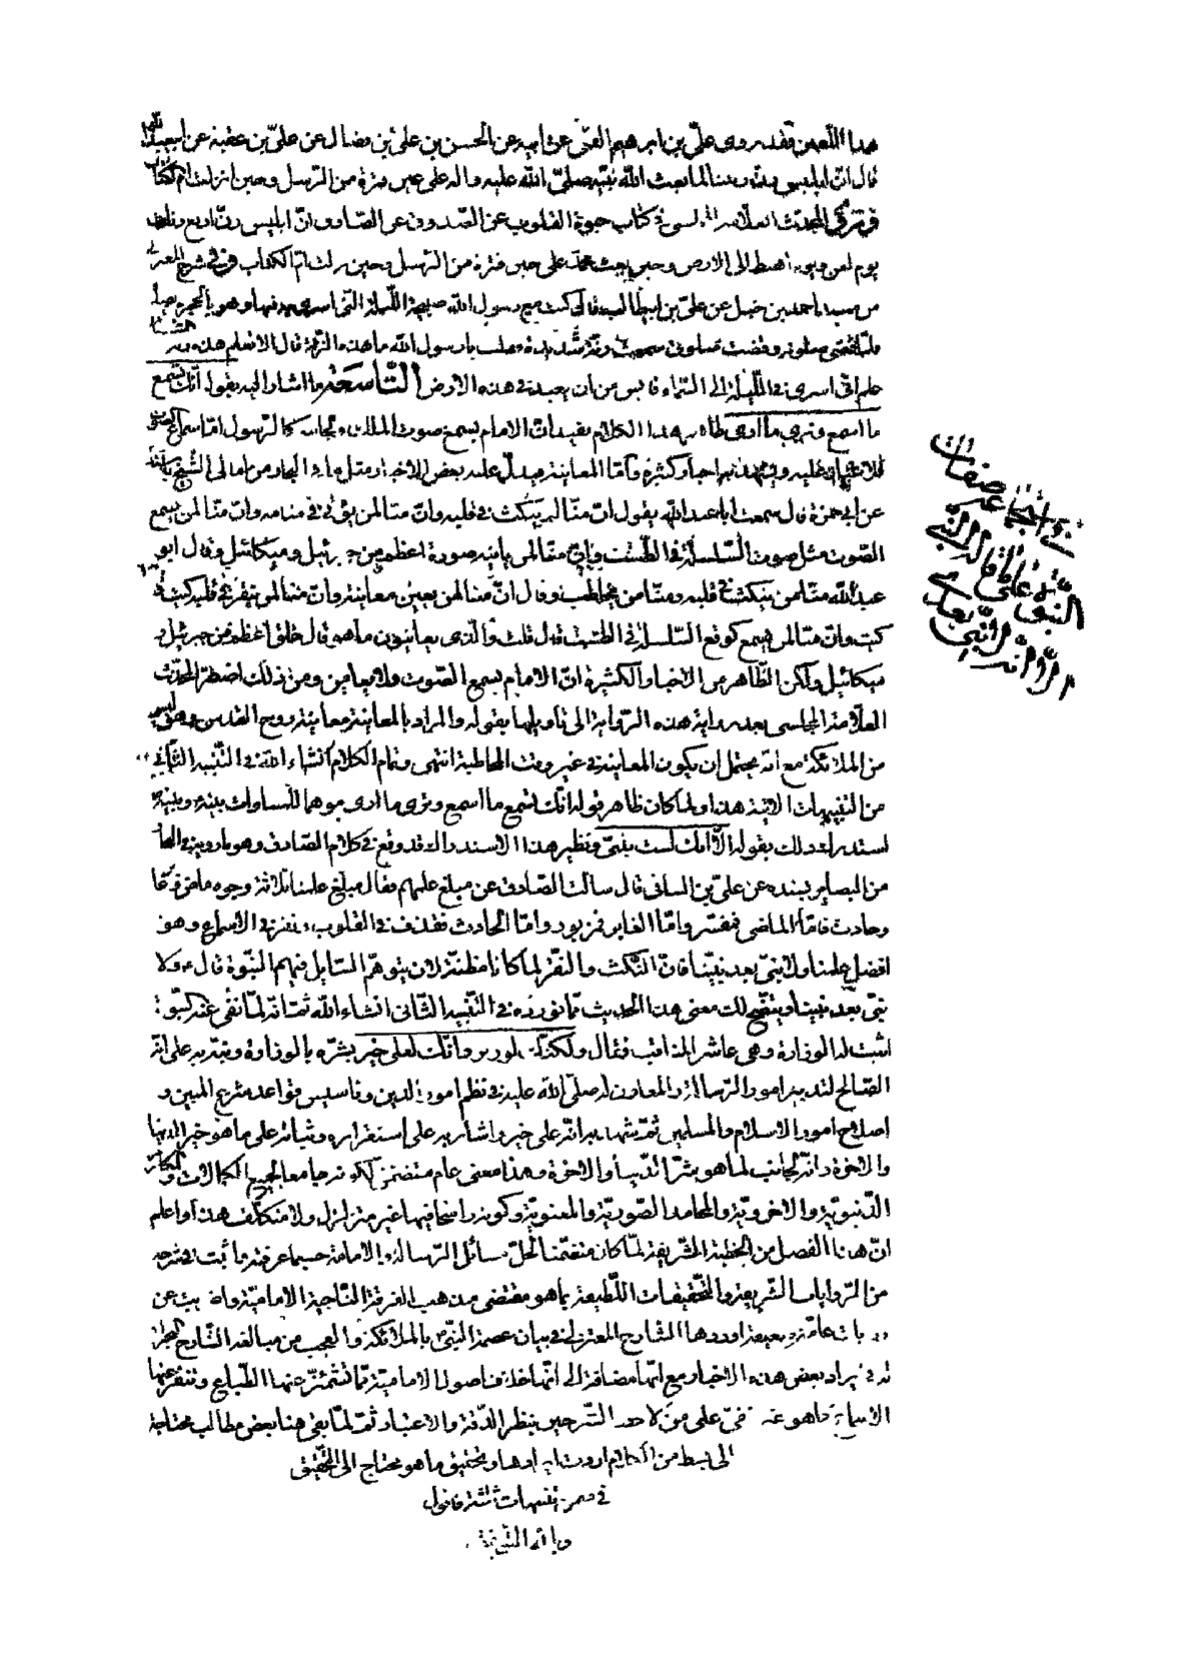 هذا اللعين فقد روى علي بن ابرهيم القمي عن ابيه عن الحسن بن علي بن فضال عن علي بن عقبة عن ابيعبدالله
قال ان ابليس رن رنينا لما بعث الله نبيه صلى الله عليه واله على حين فترة من الرسل وحين انزلت ام الكتاب
المحدث العلامة المجلسي في كتاب حيوة القلوب عن الصدوق عن الصادق ان ابليس رن اربع رنات
يوم لعن ويوم اهبط الى الارض وحين بعث محمد على حين فترة من الرسل وحين نزلت ام الكتاب وفي شرح المعتزلي
من مسند احمد بن حنبل عن علي بن ابيطالب قال كنت مع رسول الله صبيحة الليلة التي اسرى به فيها وهو بالحجر يصلي
فلما قضى صلوته وقضيت صلوتي سمعت رنة شديدة فقلت يا رسول الله ما هذه الرنة قال الا تعلم هذه رنة الشيطان
علم اني اسرى بي الليلة الى السماء فايس من ان يعبد في هذه الارض التاسعة ما اشار اليه بقوله انك تسمع
ما اسمع وترى ما ارى ظاهر هذا الكلام يفيد ان الامام يسمع صوت الملائكة ويعاينه كالرسول اما سماع الصوت
فلا غبار عليه ويشهد به اخبار كثيرة واما المعاينة فيدل عليه بعض الاخبار مثل ما في البحار من امالي الشيخ باسناده
عن ابي حمزة قال سمعت ابا عبد الله يقول ان منا لمن ينكث في قلبه وان منا لمن يؤتى في منامه وان منا لمن يسمع
الصوت مثل صوت السلسلة في الطست وان منا لمن ياتيه صورة اعظم من جبرئيل وميكائيل وقال ابو
عبد الله منا من ينكث في قلبه ومنا من يخاطب وقال ان منا لمن يعاين معاينة وان منا لمن ينقر في قلبه كيت و
كيت وان منا لمن يسمع كوقع السلسلة في الطست قال قلت والذي يعاينون ما هو قال خلق اعظم من جبرئيل و
ميكائيل ولكن الظاهر من الاخبار الكثيرة ان الامام يسمع الصوت ولا يعاين ومن ذلك اضطر المحدث
العلامة المجلسي بعد رواية هذه الرواية الى تاويلها بقوله والمراد بالمعاينة معاينة روح القدس وهو ليس
من الملائكة مع انه يحتمل ان يكون المعاينة في غير وقت المخاطبة انتهى وتمام الكلام انشاء الله في التنبيه الثاني
من التنبيهات الاتية هذا ولما كان ظاهر قوله انك تسمع ما اسمع وترى ما ارى موهما للمساوات بينه وبينه
استدرك ذلك بقوله الا انك لست بنبي ونظير هذا الاستدراك قد وقع في كلام الصادق وهو ما رويه في البحار
من البصاير بسنده عن علي بن السائي قال سالت الصادق عن مبلغ علمهم فقال مبلغ علمنا ثلاثة وجوه ماض وغابر
وحادث فاما الماضي فمفسر واما الغابر فمزبور واما الحادث فقذف في القلوب ونقر في الاسماع وهو
افضل علمنا ولا نبي بعد نبينا فان النكث والنقر لما كانا مظنة لان يتوهم السايل فيهم النبوة قال ولا
نبي بعد نبينا ويتضح لك معنى هذا الحديث مما نورده في التنبيه الثاني انشاء الله ثم انه لما نفى عنه النبوة
اثبت له الوزارة وهي عاشر المناقب فقال ولكنك لوزير وانك لعلى خير بشره بالوزارة ونبه به على انه
الصالح لتدبير امور الرسالة والمعاون له صلى الله عليه في نظم امور الدين وتاسيس قواعد شرع المبين و
اصلاح امور الاسلام والمسلمين ثم شهد بانه على خير واشار به على استقراره وثباته على ما هو خير الدنيا
والاخرة وانه مجانب لما هو شر الدنيا والاخرة وهذا معنى عام متضمن لكونه جامعا لجميع الكمالات والمكارم
الدنيوية والاخروية والمحامد الصورية والمعنوية وكونه راسخا فيها غير متزلزل ولا متكلف هذا واعلم
ان هذا الفصل من الخطبة الشريفة لما كان متضمنا لحل مسائل الرسالة والامامة حسبما عرفته ما ثبت في شرحه
من الروايات الشريفة والتحقيقات اللطيفة بما هو مقتضى مذهب الفرقة الناجية الامامية واضربت عن
روايات عامية ضعيفة اوردها الشارح المعتزلي في بيان عصمة النبي بالملائكة والعجب من مبالغة الشارح البحراني
في ايراد بعض هذه الاخبار مع انها مضافة الى انها خلاف اصول الامامية مما تشمئز عنها الطباع وتنفر عنها
الاسماع كما هو غير خفي على من لاحظ الشرحين بنظر الدقة والاعتبار ثم لما بقي هنا بعض مطالب محتاجة
الى بسط من الكلام اردت ايرادها وتحقيق ما هو محتاج الى التحقيق
في ضمن تنبيهات ثلثة فاقول
وبالله التوفيق